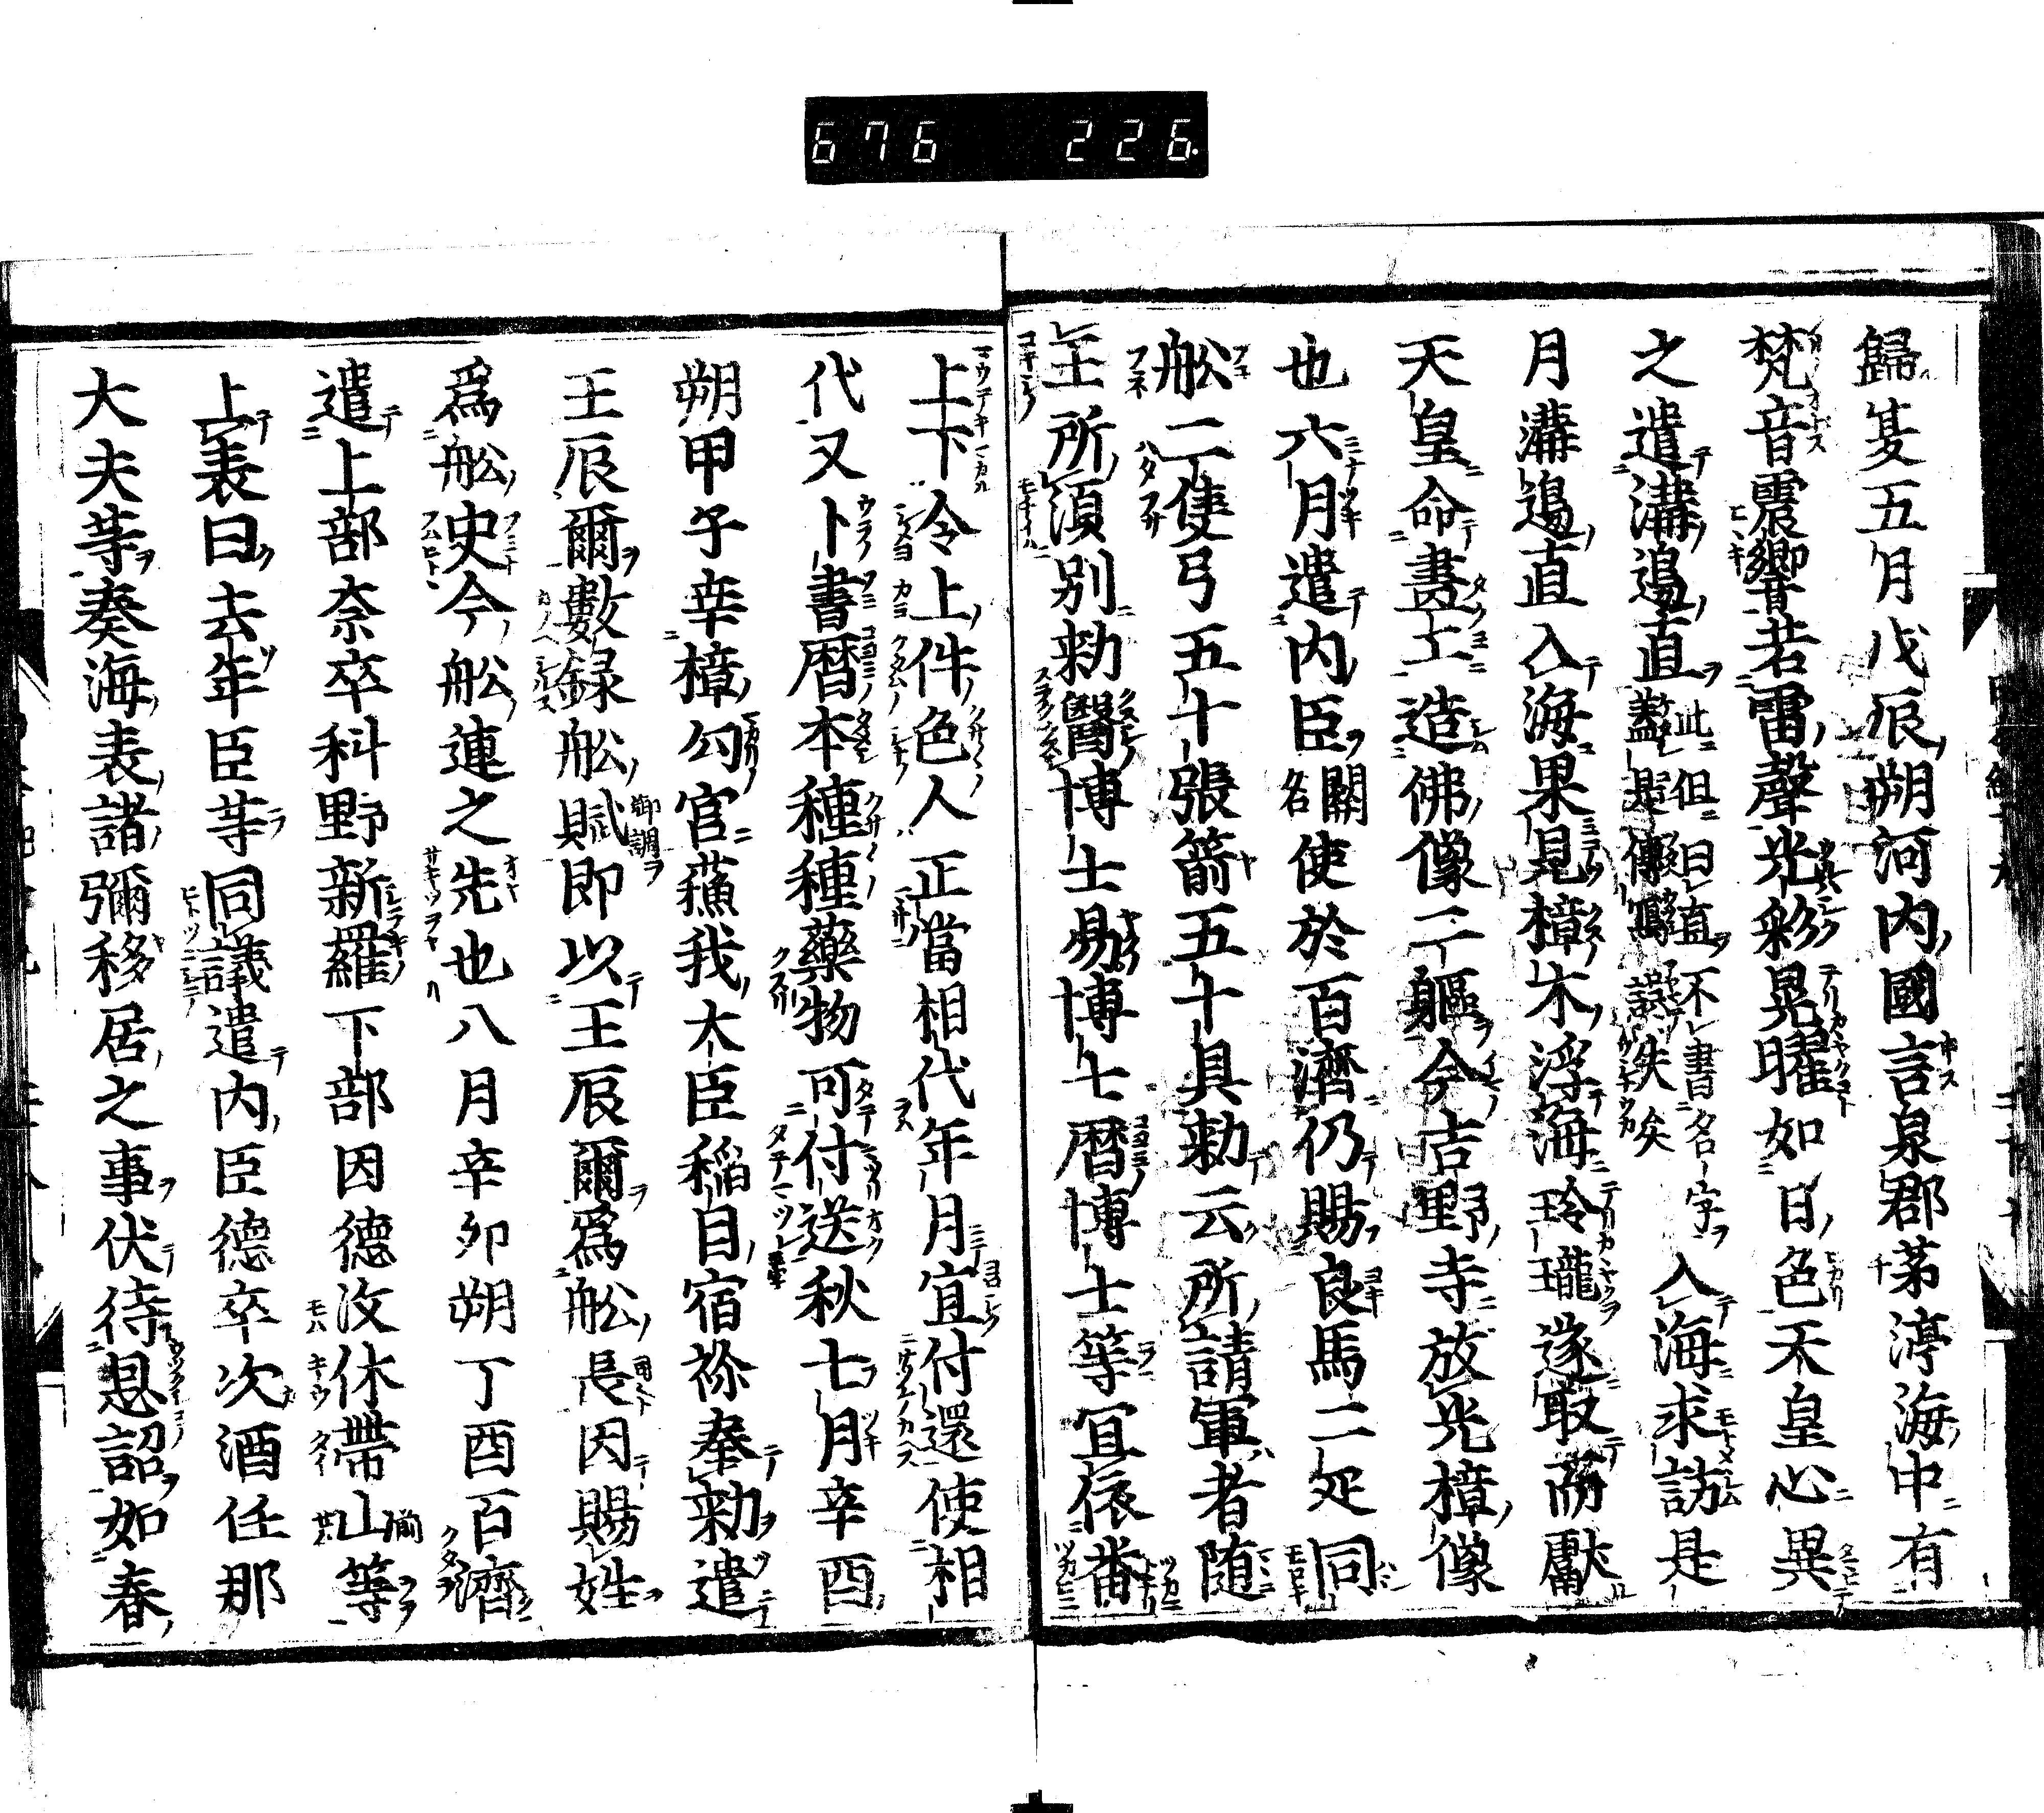 676 226.
歸夏五月戊辰朔河内國言泉郡茅渟海中有
梵音震響若雷聲光彩晃曜如日色天皇心異
之遣溝邊直此但曰直不書名字蓋是傳寫誤失矣入海求訪是
月溝邊直入海果見樟木浮海玲瓏遂取而獻
天皇命畫工造佛像二軀今吉野寺放光樟像
也六月遣内臣闕名使於百濟仍賜良馬二疋同
舩二隻弓五十張箭五十具勅云所請軍者随
王所須別勅醫博士易博士暦博士等宜依番
上下令上件色人正當相代年月宜付還使相
代又卜書暦本種種藥物可付送秋七月辛酉
朔甲子幸樟勾宮蘇我大臣稲目宿祢奉勅遣
王辰爾數録舩賦即以王辰爾爲舩長因賜姓
爲舩史今舩連之先也八月辛卯朔丁酉百濟
遣上部奈卒科野新羅下部固德汶休帶山等
上表曰去年臣等同議遣内臣德卒次酒任那
大夫等奏海表諸彌移居之事伏待恩詔如春